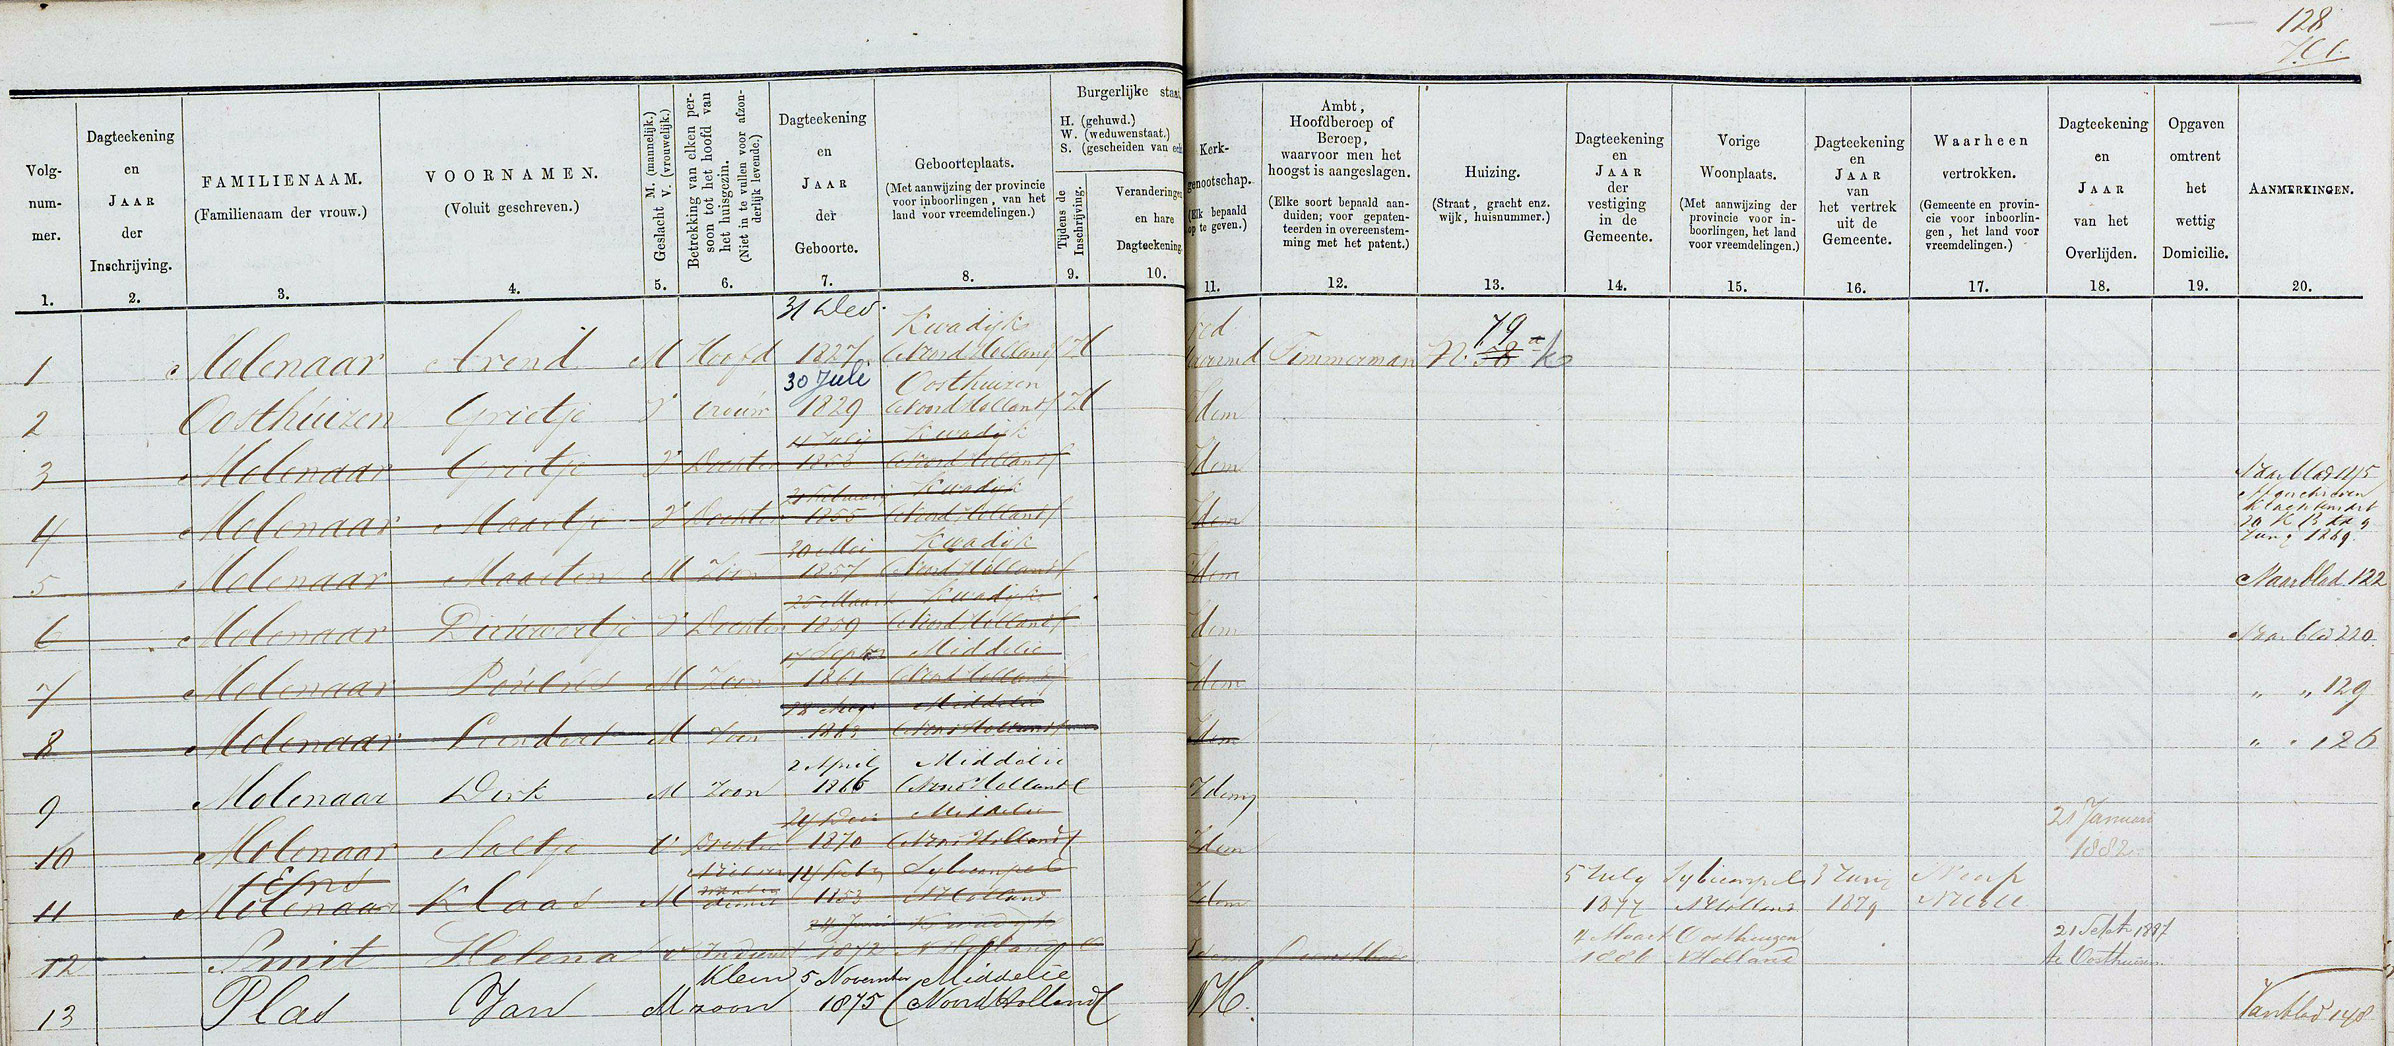 128
Volg-
num-
mer.
1.
Dagteekening
en
JAAR
der
Inschrijving.
2.
FAMILIENAAM.
(Familienaam der vrouw.)
3.
VOORNAMEN.
(Voluit geschreven.)
4.
Geslacht M. (mannelijk.)
V. (vrouwelijk.)
5.
Betrekking van elken per-
soon tot het hoofd van
het huisgezin.
(Niet in te vullen voor afzon-
derlijk levende.)
6.
Dagteekening
en
JAAR
der
Geboorte.
7.
Geboorteplaats.
(Met aanwijzing der provincie
voor inboorlingen, van het
land voor vreemdelingen.)
8.
Burgerlijke staat,
H. (gehuwd.)
W. (weduwenstaat.)
S. (gescheiden van ech
Tijdens de
Inschrijving.
9.
Veranderingen
en hare
Dagteekening.
10.
Kerk-
genootschap.
(Elk bepaald
op te geven.)
11.
Ambt,
Hoofdberoep of
Beroep,
waarvoor men het
hoogst is aangeslagen.
(Elke soort bepaald aan-
duiden; voor gepaten-
teerden in overeenstem-
ming met het patent.)
12.
Huizing.
(Straat, gracht enz.
wijk, huisnummer.)
13.
Dagteekening
en
JAAR
der
vestiging
in de
Gemeente.
14.
Vorige
Woonplaats.
(Met aanwijzing der
provincie voor in-
boorlingen, het land
voor vreemdelingen.)
15.
Dagteekening
en
JAAR
van
het vertrek
uit de
Gemeente.
16.
Waarheen
vertrokken.
(Gemeente en provin-
cie voor inboorlin-
gen, het land voor
vreemdelingen.)
17.
Dagteekening
en
JAAR
van het
Overlijden.
18.
Opgaven
omtrent
het
wettig
Domicilie.
19.
AANMERKINGEN.
20.
31 Dec. Kwadijk
1 Molenaar Arend M Hoofd 1827 (Noord Holland) H Timmerman N. 79
30 Juli Oosthuizen
2 Oosthuizen Grietje V vrouw 1829 (Noord Holland) H Idem
11 July Kwadijk
3 Molenaar Grietje V Dochter 1853 (Noord Holland) Idem Naar blad 145
21 Februarij Kwadijk
4 Molenaar Maartje V Dochter 1855 (Noord Holland) Idem Afgeschreven
20 Mei Kwadijk
5 Molenaar Maarten M Zoon 1857 (Noord Holland) Idem Naar blad 122
25 Maart Kwadijk
6 Molenaar Dieuwertje V Dochter 1859 (Noord Holland) Idem Naar blad 220
17 Sept Middelie
7 Molenaar M Zoon 1861 (Noord Holland) Idem " " 129
Middelie
8 Molenaar Leendert M Zoon 1863 (Noord Holland) Idem " " 126
2 April Middelie
9 Molenaar Dirk M Zoon 1866 (Noord Holland) Idem
29 Dec Middelie 21 Januari
10 Molenaar Aaltje V Dochter 1870 (Noord Holland) Idem 1882
14 Febr 5 July 3 Juny
11 Molenaar Klaas M 1853 N Holland Idem 1877 N Holland 1879
24 Juni Kwadijk 4 Maart Oosthuizen 21 Sept 1887
12 Smit Helena V 1872 N Holland Idem 1886 N Holland te Oosthuizen
Klein 5 November Middelie
13 Plas Jan M zoon 1875 (Noord Holland) NH. Van blad 148